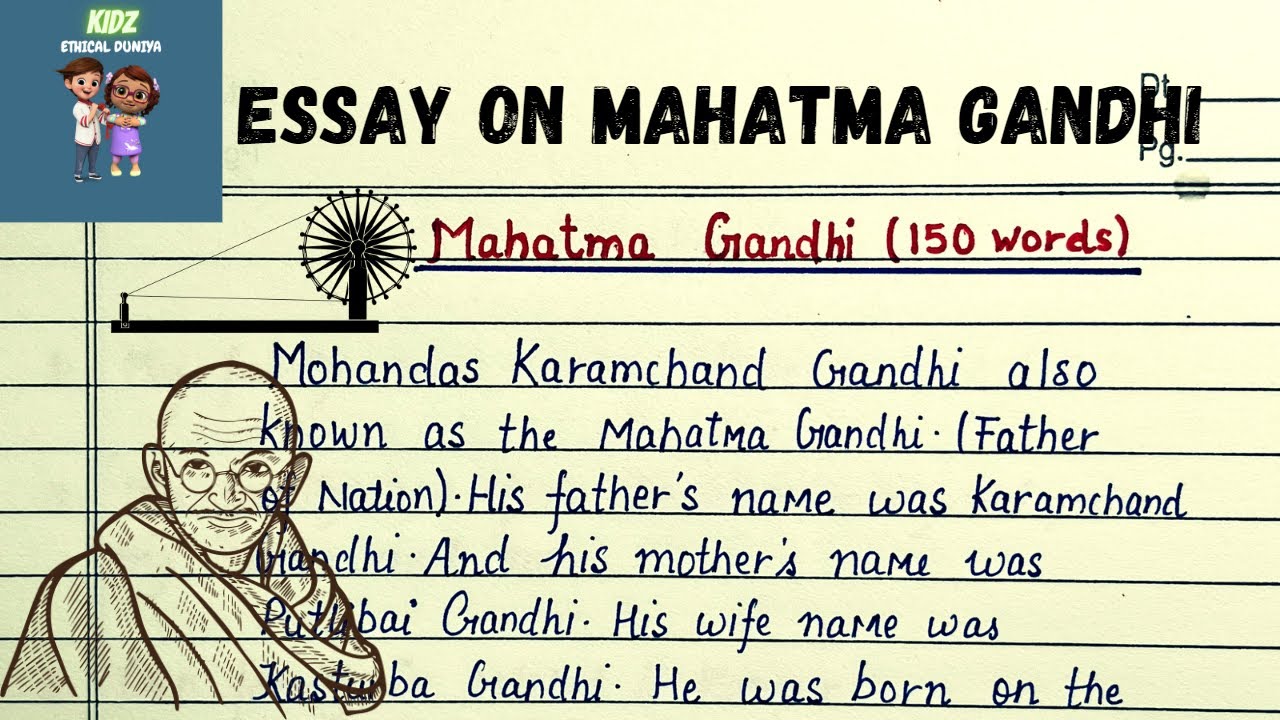 KIDZ
ETHICAL DUNIYA
ESSAY ON MAHATMA GANDHI
Dt.
Pg.
Mahatma Gandhi (150 words)
Mohandas Karamchand Gandhi also
known as the Mahatma Gandhi. (Father
of Nation). His father's name was Karamchand
Gandhi. And his mother's name was
Putlibai Gandhi. His wife name was
Kasturba Gandhi. He was born on the